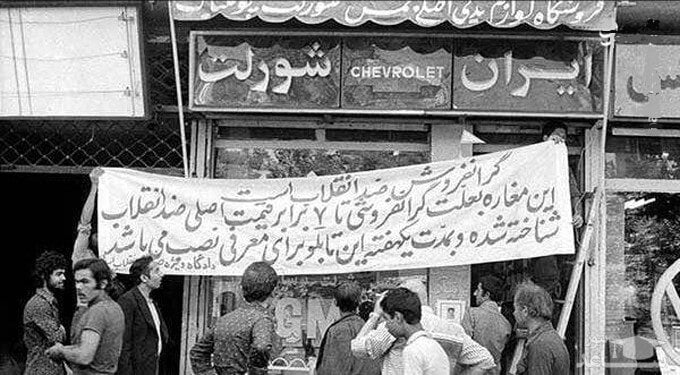 فروشگاه لوازم یدکی اصلی
ایران
CHEVROLET
شورلت
گرانفروش ضد انقلاب است
این مغازه بعلت گرانفروشی تا ۷ برابر قیمت اصلی ضد انقلاب
شناخته شده و بمدت یکهفته این تابلو برای معرفی نصب می باشد
دادگاه ویژه صنفی
GM